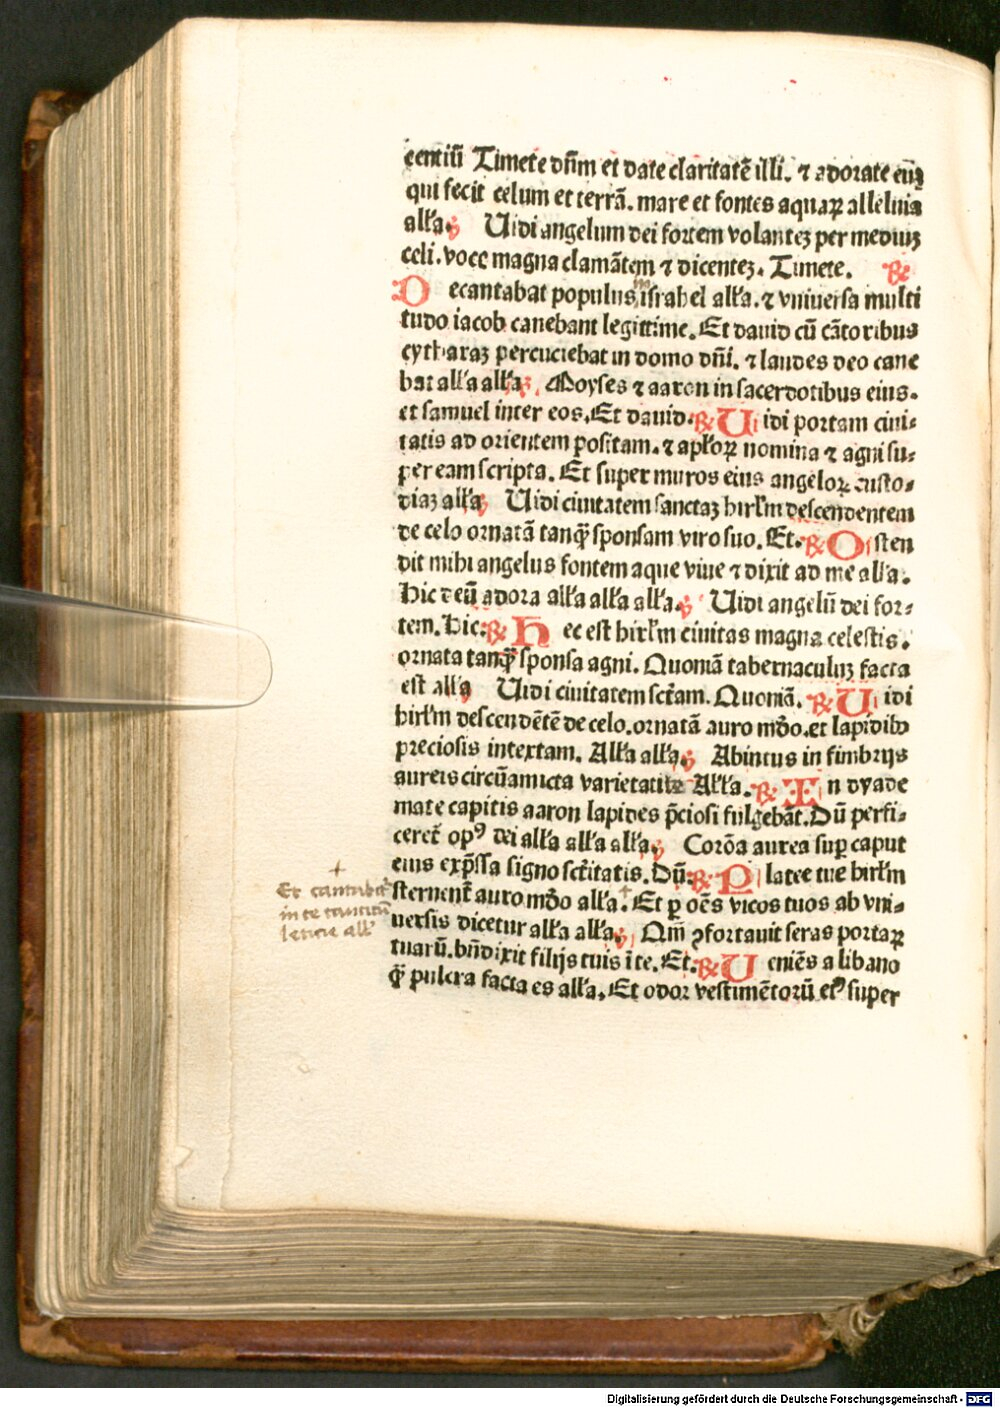 centiū Timete dn̄m et date claritatē illi. ⁊ adorate eūꝫ
qui fecit celum et terrā. mare et fontes aquaꝝ alleluia
alła. ℣ Uidi angelum dei fortem volanteꝫ per mediuꝫ
celi. voce magna clamātem ⁊ dicenteꝫ. Timete. ℟
Decantabat populus israhel alła. ⁊ vniuersa multi
tudo iacob canebant legittime. Et dauid cū cātoribus
cytharaꝫ percuciebat in domo dn̄i. ⁊ laudes deo cane
bat alła alła ℣ Moyses ⁊ aaron in sacerdotibus eius.
et samuel inter eos. Et dauid. ℟ Uidi portam ciui⸗
tatis ad orientem positam. ⁊ apłoꝝ nomina ⁊ agni su⸗
per eam scripta. Et super muros eius angeloꝝ custo⸗
diaꝫ alła ℣ Uidi ciuitatem sanctaꝫ hirłm descendentem
de celo ornatā tanꝙ̄ sponsam viro suo. Et. ℟ Osten
dit mihi angelus fontem aque viue ⁊ dixit ad me alła.
Hic deū adora alła alła alła. ℣ Uidi angelū dei for⸗
tem. Hic. ℟ Hec est hirłm ciuitas magna celestis.
ornata tanꝙ̄ sponsa agni. Quoniā tabernaculuꝫ facta
est alła ℣ Uidi ciuitatem sctam. Quoniā. ℟ Uidi
hirłm descendētē de celo. ornatā auro mūdo. et lapidibꝰ
preciosis intextam. Alła alła. ℣ Abintus in fimbrijs
aureis circūamicta varietatibꝫ Alła. ℟ In dyade
mate capitis aaron lapides p̄ciosi fulgebāt. Dū perfi⸗
ceret̄ opꝰ dei alła alła alła. ℣ Corōa aurea suꝑ caput
eius exp̄ssa signo sctitatis. Dū. ℟ Platee tue hirłm
sternent̄ auro mūdo alła. Et ꝑ oēs vicos tuos ab vni⸗
uersis dicetur alła alła. ℣ Qm̄ ꝯfortauit seras portaꝝ
tuarū. bn̄dixit filijs tuis ī te. Et. ℟ Ueniēs a libano
ꝙ̄ pulcra facta es alła. Et odor vestimētorū eiꝰ super
+
Et cantabit᷑
in te canticū
leticie all᷑
Digitalisierung gefördert durch die Deutsche Forschungsgemeinschaft - DFG